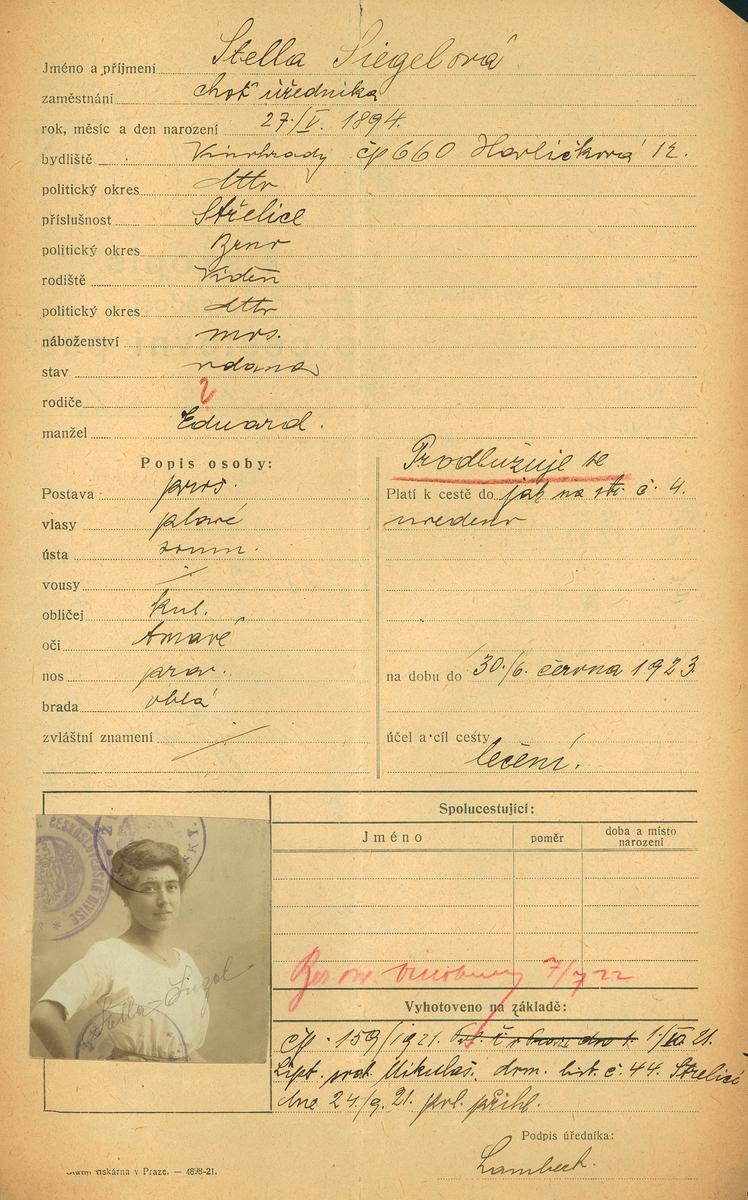 Jméno a příjmení Stella Siegelová
zaměstnání choť úředníka
rok, měsíc a den narození 27/V. 1894.
bydliště Vinohrady čp 660 Havlíčkova 12.
politický okres dtto
příslušnost Střelice
politický okres Brno
rodiště Vídeň
politický okres dtto
náboženství mos.
stav vdaná
rodiče ?
manžel Eduard.
Popis osoby:
Postava pros.
vlasy plavé
ústa soum.
vousy /
obličej kul.
oči tmavé
nos prav.
brada oblá
zvláštní znamení /
Prodlužuje se
Platí k cestě do jak na str. č. 4.
uvedeno
na dobu do 30./6. června 1923.
účel a cíl cesty
léčení.
Spolucestující:
Jméno poměr doba a místo narození
7/7 22
Vyhotoveno na základě:
čp. 159/1921. 1/VII 21.
Lipt. svat. Mikuláš. dom. list. č. 44. Střelice
dne 24/9. 21. pol. přihl.
Podpis úředníka:
Lambeck.
ČESKOSLOVENSKÉ DIVISE
Stella Siegel
Státní tiskárna v Praze. — 4898-21.